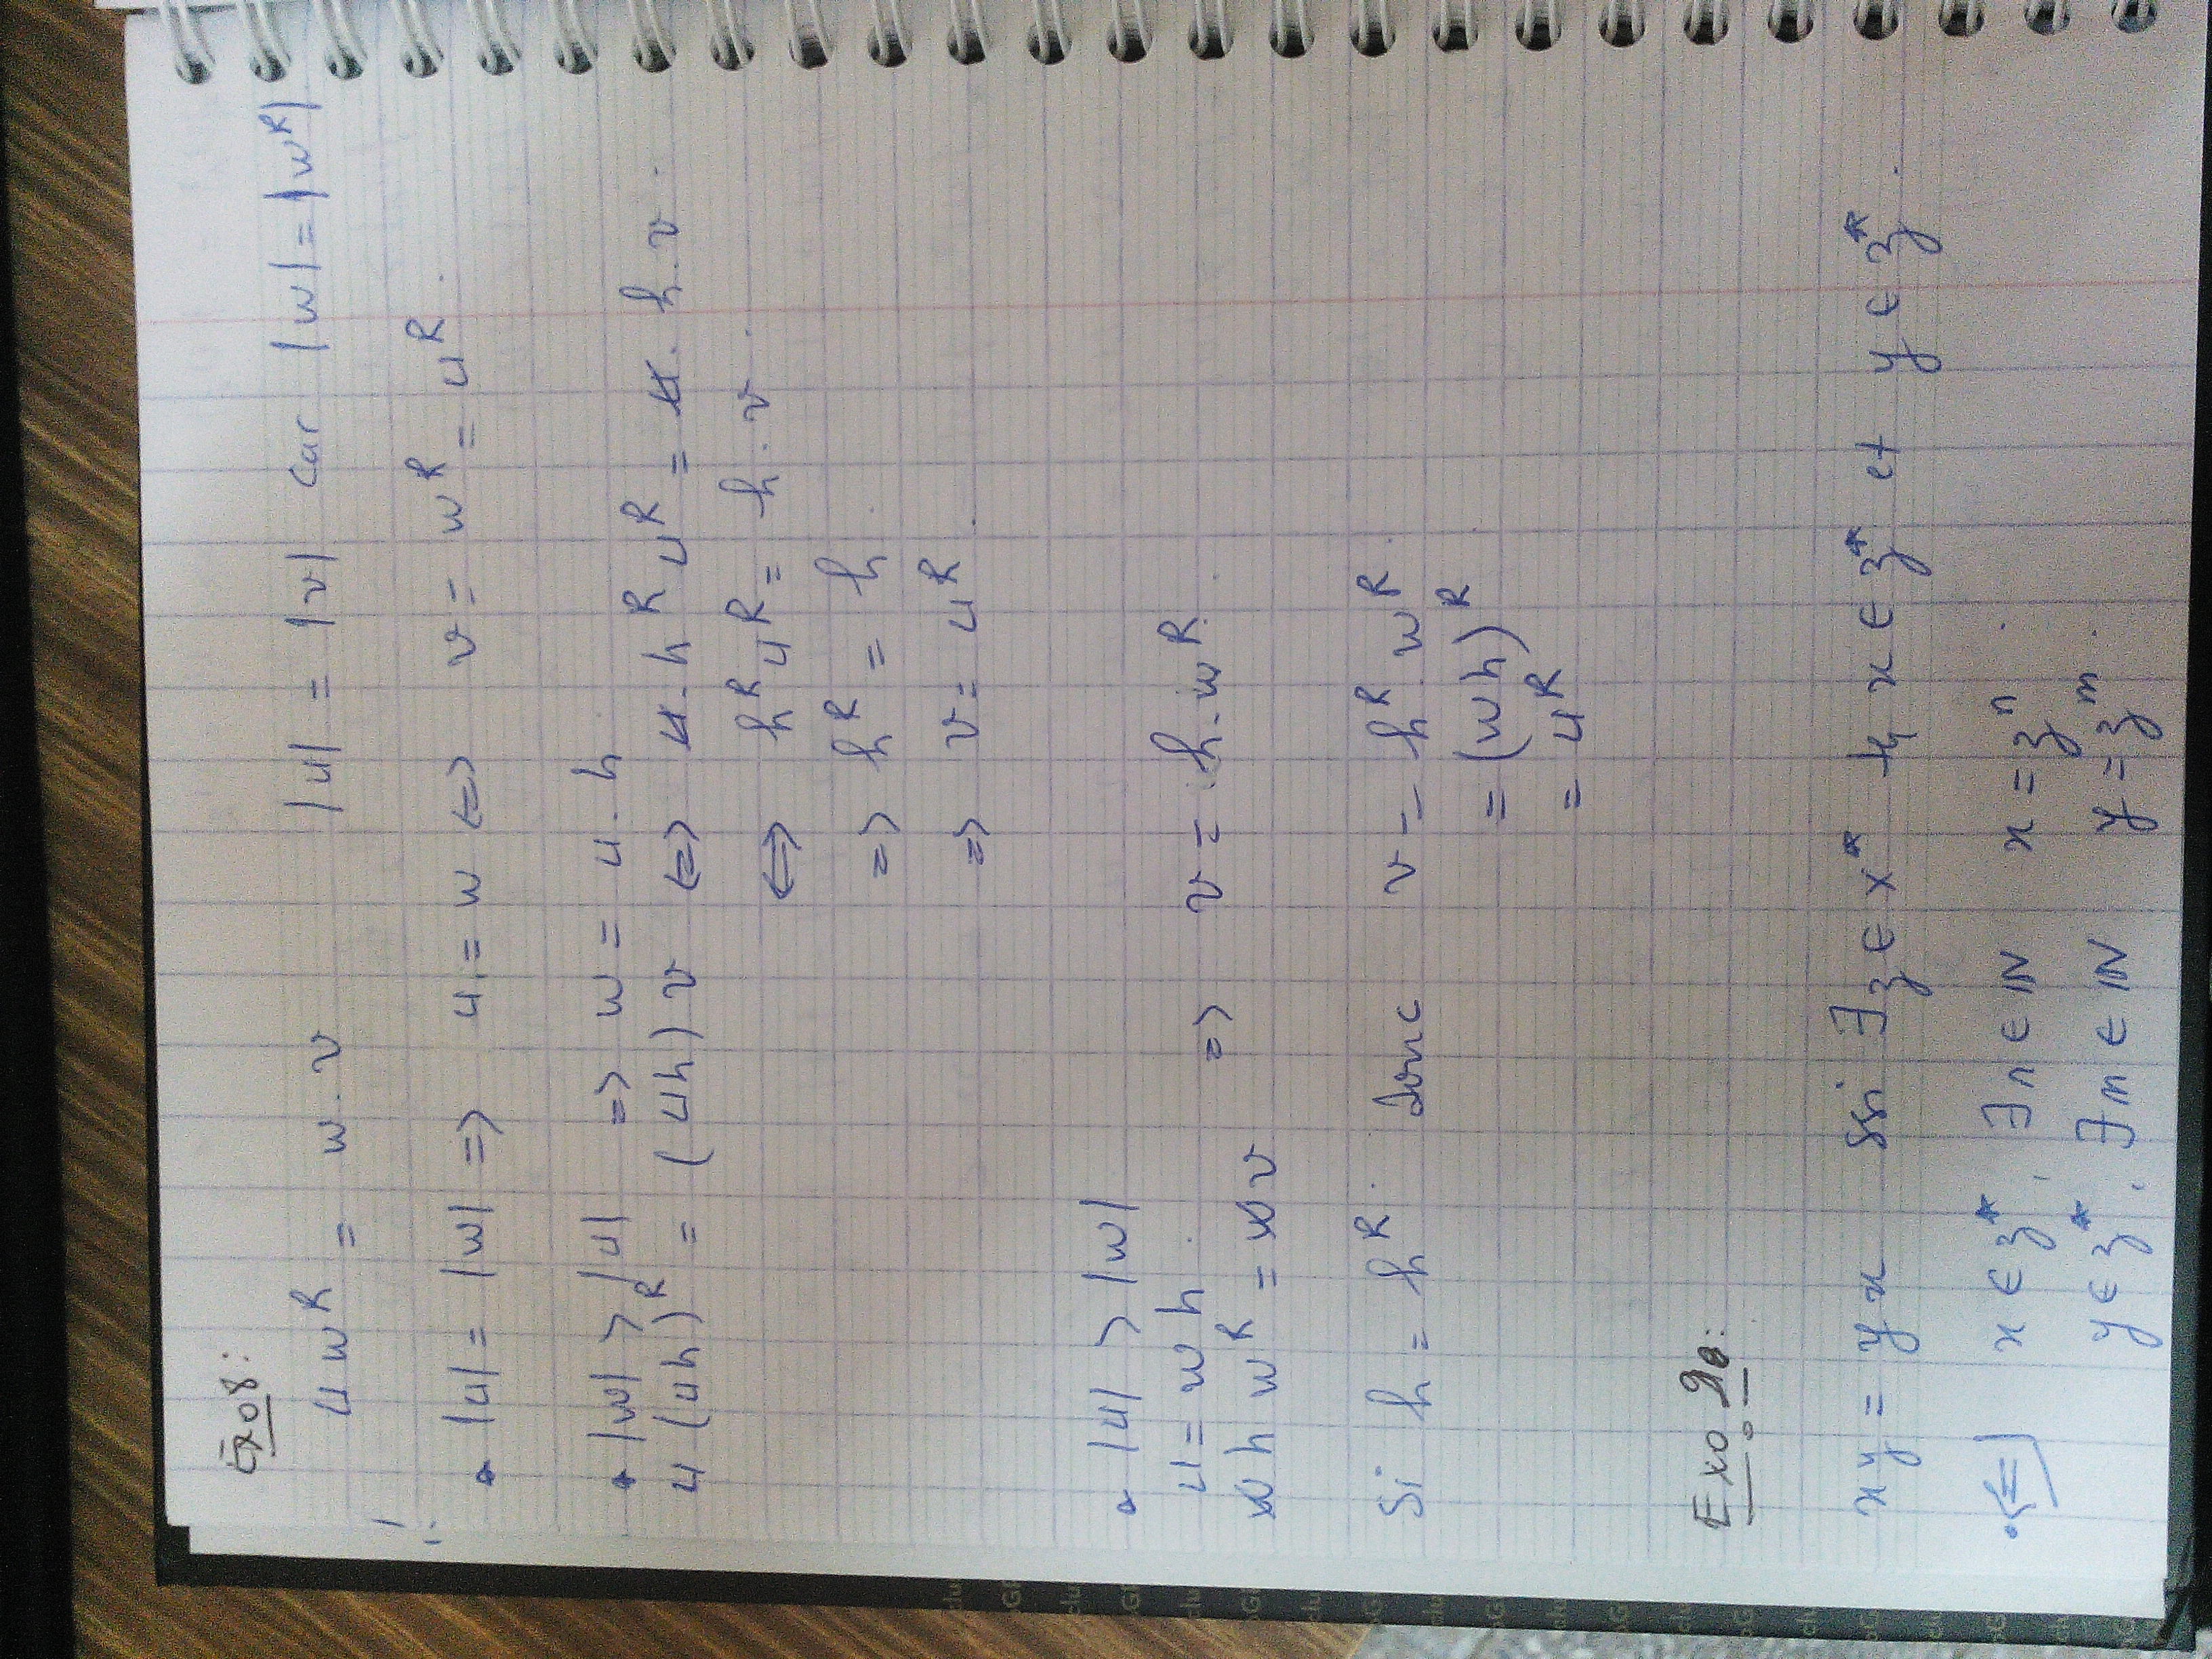 Exo8:
uw^R = w.v |u| = |v| car |w| = |w^R|
• |u| = |w| => u = w <=> v = w^R = u^R.
• |w| > |u| => w = u.h
u(uh)^R = (uh)v <=> u.h^R u^R = u.h.v
<=> h^R u^R = h.v
=> h^R = h
=> v = u^R.
• |u| > |w|
u = wh. => v = h.w^R.
w h w^R = w v
Si h = h^R. donc v = h^R.w^R.
= (wh)^R
= u^R
Exo
xy = yx ssi ∃z ∈ X* tq x ∈ z* et y ∈ z*.
• <=) x ∈ z*, ∃n ∈ IN x = z^n.
y ∈ z*, ∃m ∈ IN y = z^m.